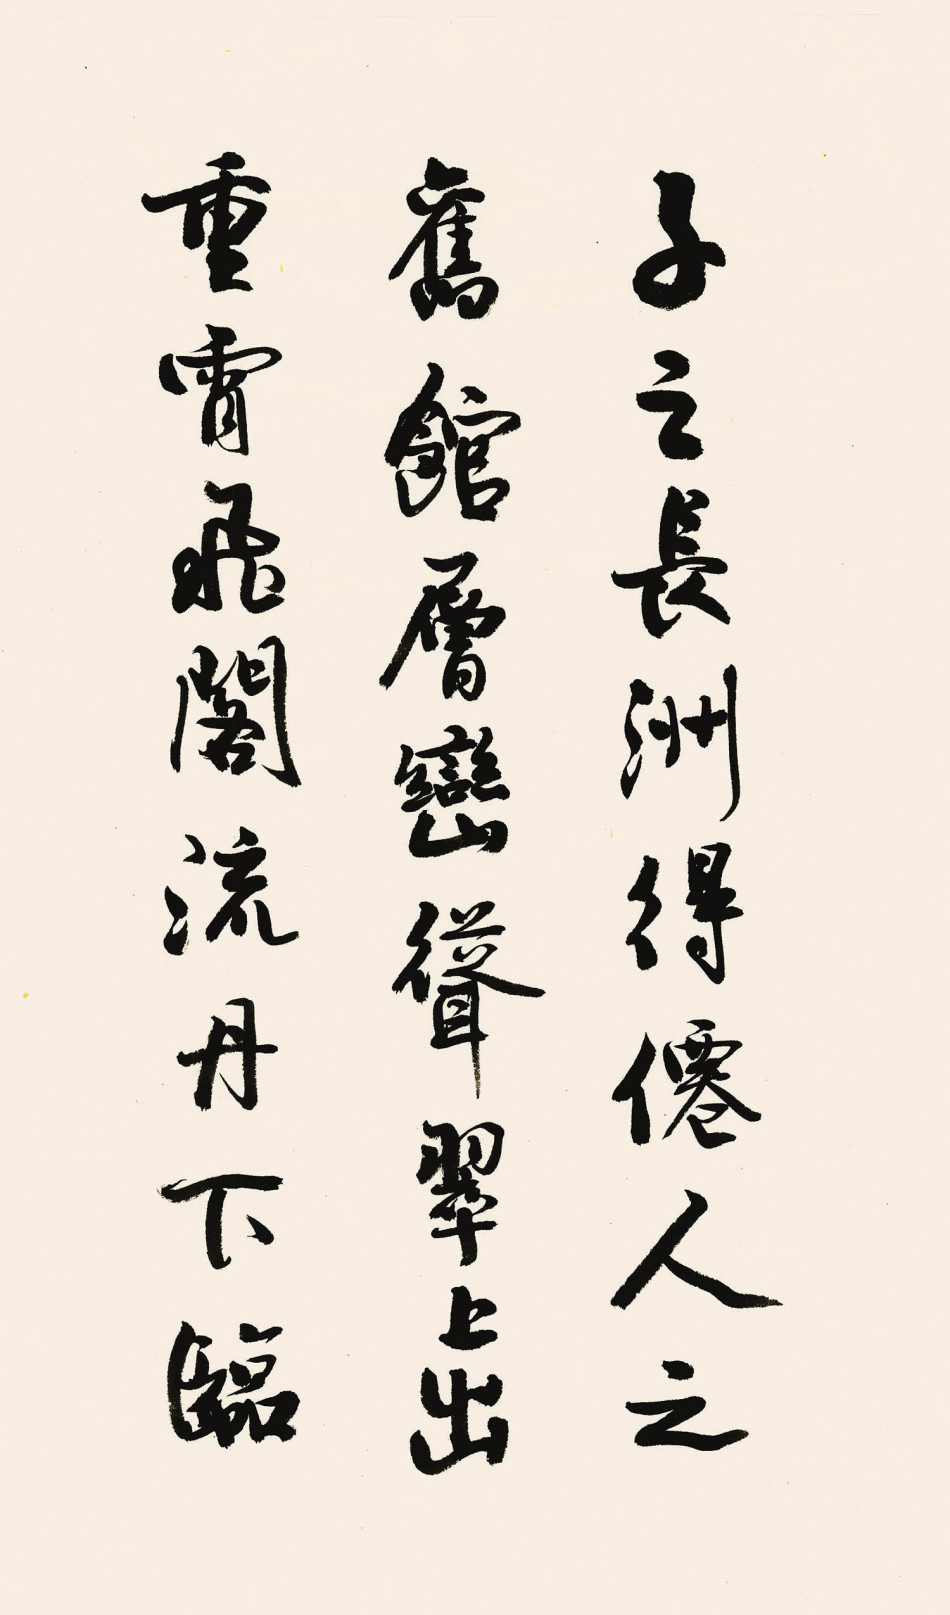 子之長洲得僊人之
舊館層巒聳翠上出
重霄飛閣流丹下臨